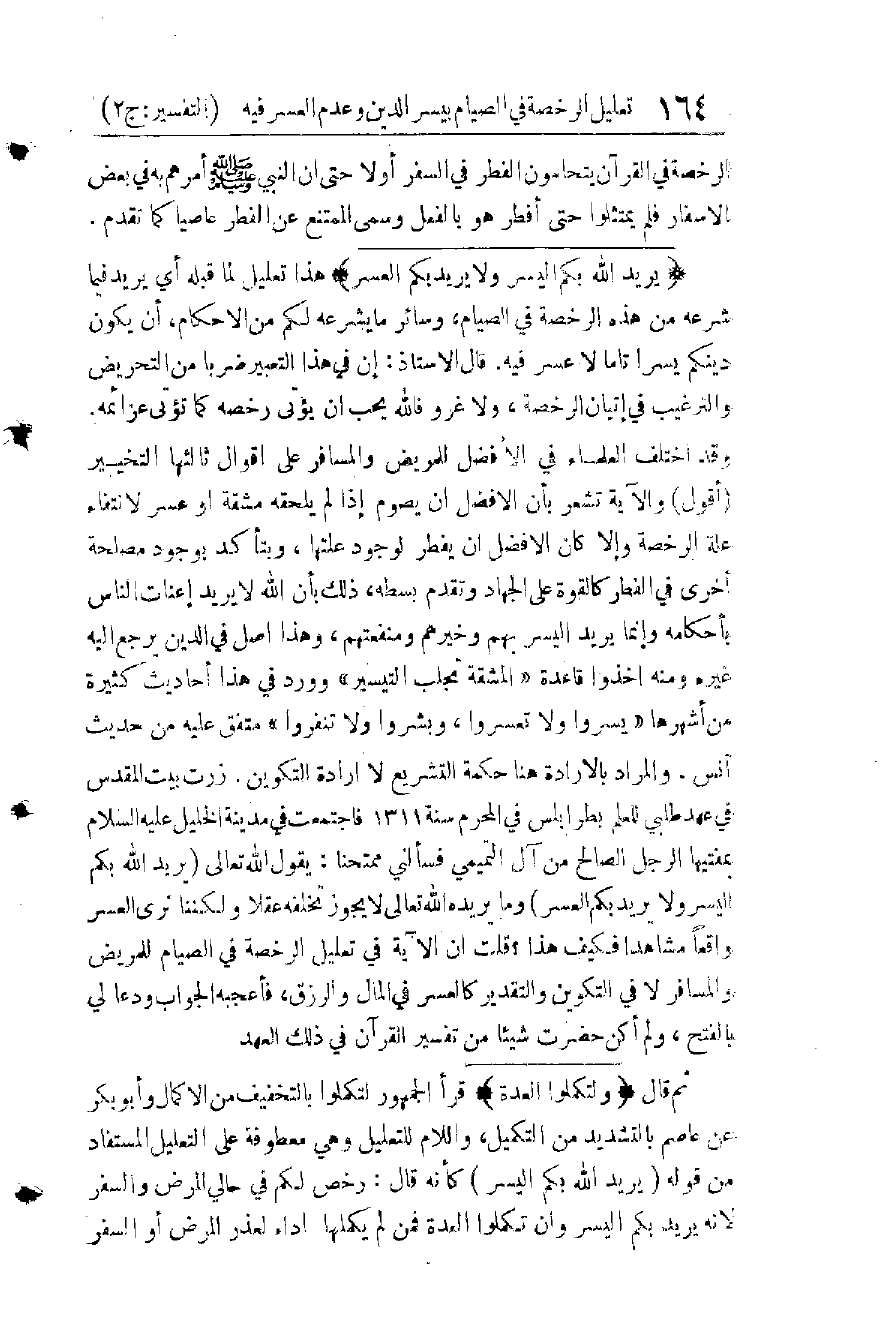 ١٦٤ تعليل الرخصة في الصيام بيسر الدين وعدم العسر فيه (التفسير: ج٢)
الرخصة في القرآن يتحامون الفطر في السفر أولا حتى ان النبي ﷺ أمرهم به في بعض
الاسفار فلم يمتثلوا حتى أفطر هو بالفعل وسمى الممتنع عن الفطر عاصيا كما تقدم .
﴿ يريد الله بكم اليسر ولا يريد بكم العسر ﴾ هذا تعليل لما قبله أي يريد فيما
شرعه من هذه الرخصة في الصيام، وسائر ما يشرعه لكم من الاحكام، أن يكون
دينكم يسرا تاما لا عسر فيه. قال الاستاذ : إن في هذا التعبير ضربا من التحريض
والترغيب في إتيان الرخصة ، ولا غرو فالله يحب ان يؤتى رخصه كما تؤتى عزائمه.
وقد اختلف العلماء في الأفضل للمريض والمسافر على اقوال ثالثها التخيير
(أقول) والآية تشعر بأن الافضل ان يصوم إذا لم يلحقه مشقة او عسر لانتفاء
علة الرخصة وإلا كان الافضل ان يفطر لوجود علتها ، ويتأكد بوجود مصلحة
أخرى في الفطر كالقوة على الجهاد وتقدم بسطه، ذلك بأن الله لا يريد إعنات الناس
بأحكامه وإنما يريد اليسر بهم وخيرهم ومنفعتهم ، وهذا اصل في الدين يرجع اليه
غيره ومنه اخذوا قاعدة « المشقة تجلب التيسير » وورد في هذا أحاديث كثيرة
من أشهرها « يسروا ولا تعسروا ، وبشروا ولا تنفروا » متفق عليه من حديث
أنس . والمراد بالارادة هنا حكمة التشريع لا ارادة التكوين . زرت بيت المقدس
في عهد طلبي للعلم بطرابلس في المحرم سنة ١٣١١ فاجتمعت في مدينة الخليل عليه السلام
بمفتيها الرجل الصالح من آل التميمي فسألني ممتحنا : يقول الله تعالى (يريد الله بكم
اليسر ولا يريد بكم العسر) وما يريده الله تعالى لا يجوز تخلفه عقلا ولكننا نرى العسر
واقعاً مشاهدا فكيف هذا ؟ قلت ان الآية في تعليل الرخصة في الصيام للمريض
والمسافر لا في التكوين والتقدير كالعسر في المال والرزق، فأعجبه الجواب ودعا لي
بالفتح ، ولم أكن حضرت شيئا من تفسير القرآن في ذلك العهد
ثم قال ﴿ ولتكملوا العدة ﴾ قرأ الجمهور لتكملوا بالتخفيف من الاكمال وأبو بكر
عن عاصم بالتشديد من التكميل، واللام للتعليل وهي معطوفة على التعليل المستفاد
من قوله ( يريد الله بكم اليسر ) كأنه قال : رخص لكم في حالي المرض والسفر
لانه يريد بكم اليسر وان تكملوا العدة فمن لم يكملها اداء لعذر المرض أو السفر